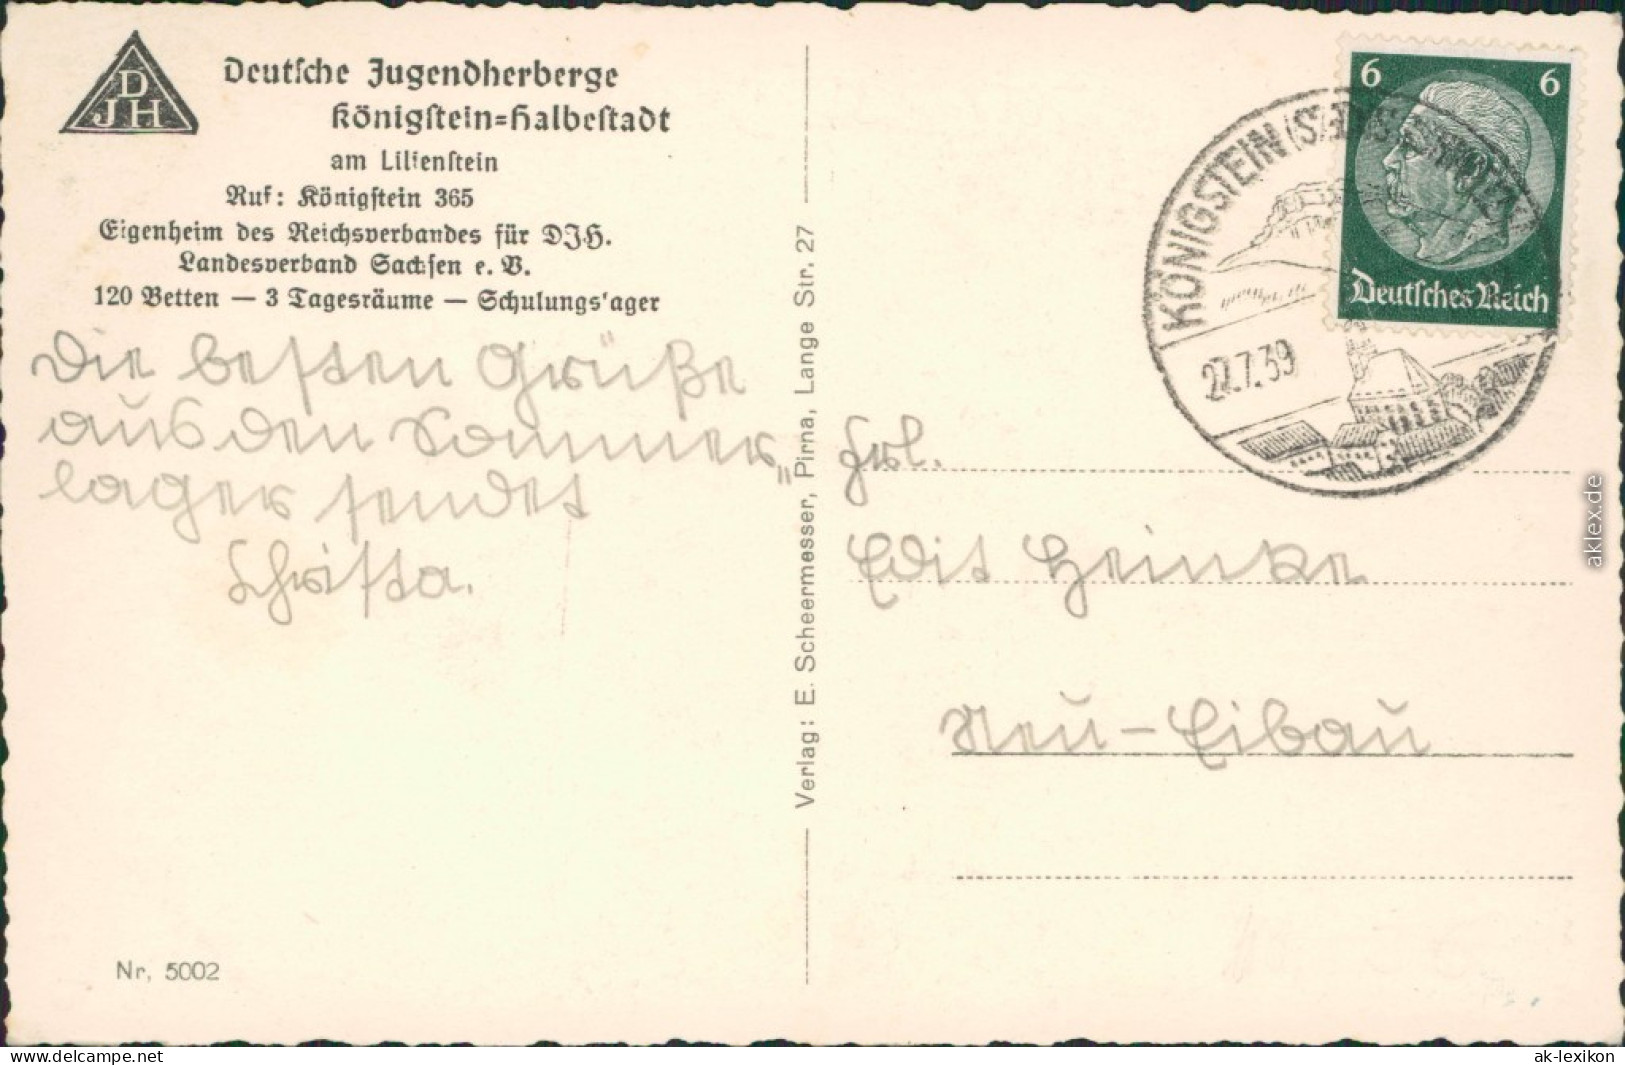 DJH
Deutsche Jugendherberge
Königstein=Halbestadt
am Lilienstein
Ruf: Königstein 365
Eigenheim des Reichsverbandes für DJH.
Landesverband Sachsen e. V.
120 Betten — 3 Tagesräume — Schulungs'ager
Die besten Grüße
aus den Sommer„
lager sendet
Christa.
Nr. 5002
Verlag: E. Scheermesser, Pirna, Lange Str. 27
6 6
Deutsches Reich
KÖNIGSTEIN
22.7.39
Frl.
Edit Heinke
Neu-Eibau
aklex.de
www.delcampe.net
ak-lexikon